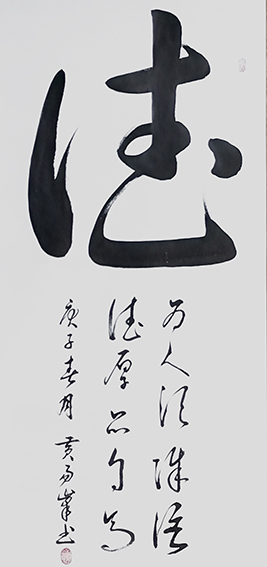 德
为人须谦
德厚品自高
庚子春月 黄峰书